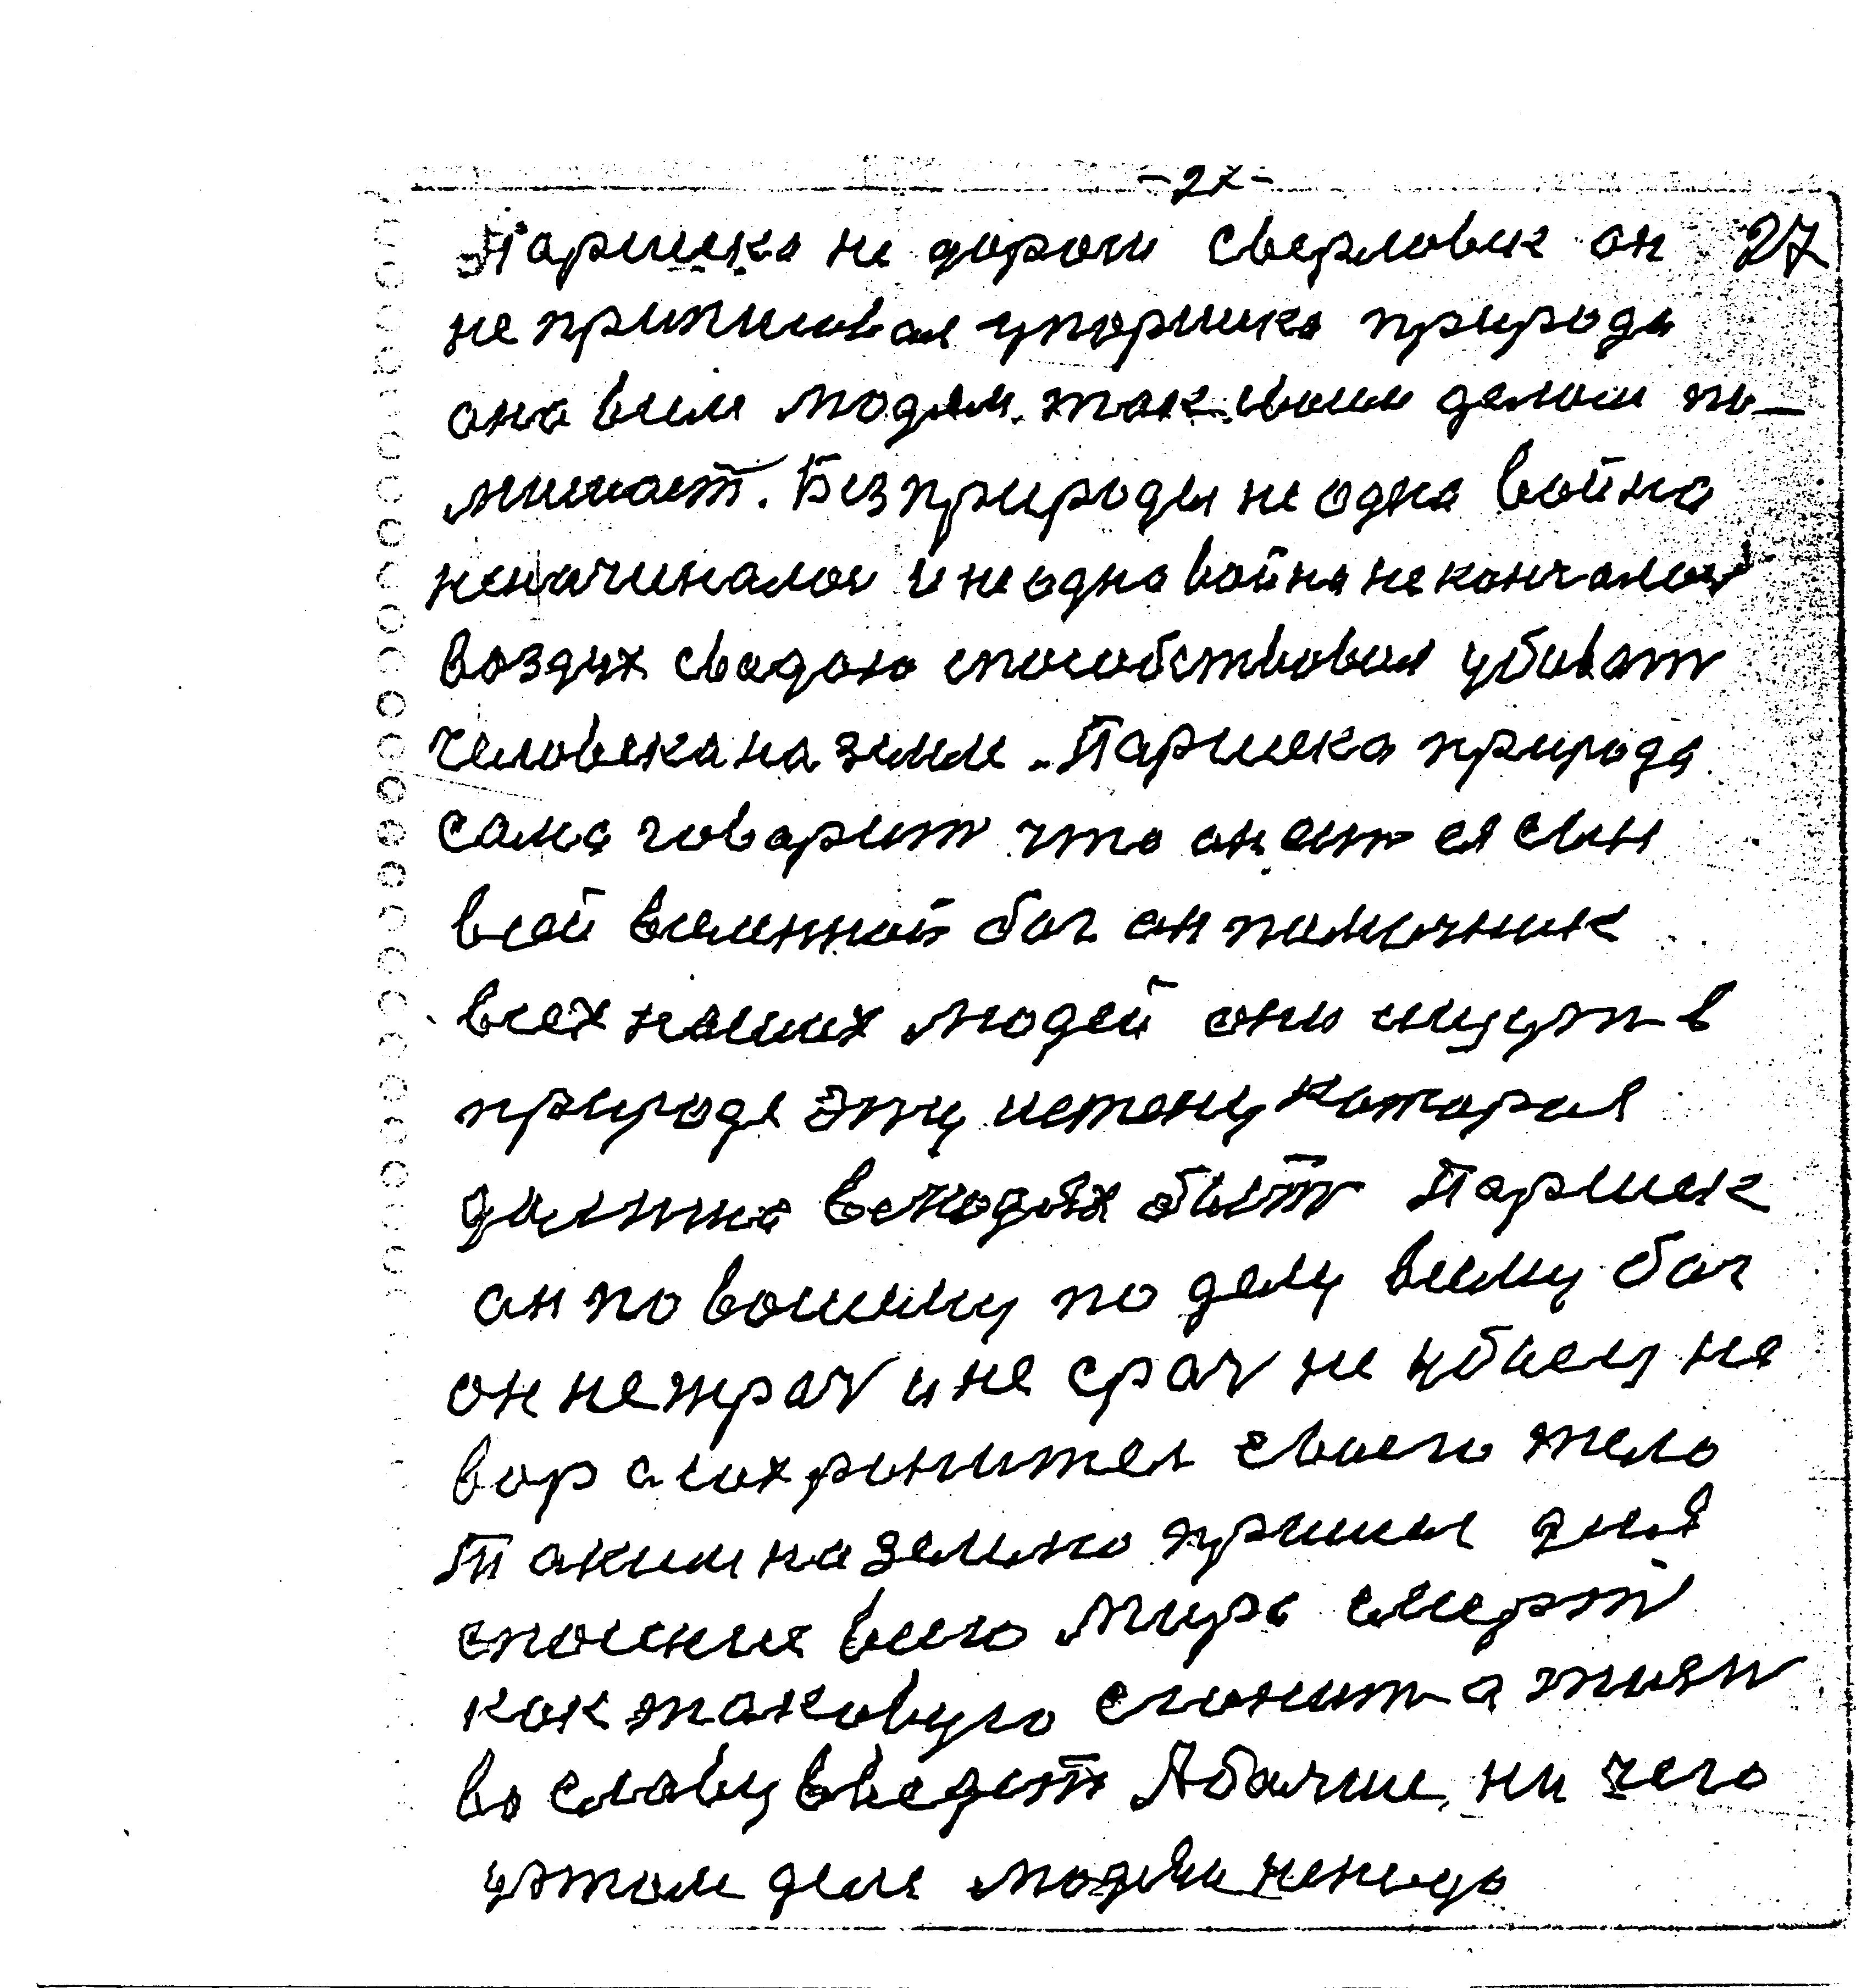 -27-
Паршека не дороги сверловик он 27
не приписовал упоршика природа
она всем людям так своим делом по-
мишает. Без природы не одна война
неначиналос и не одна война не кончалос
воздух сводою способствовал убиват
человека на земли. Паршека природа
сама говорит что он ест ея сын
всей вселенной бог он помочник
всех наших людей они ищут в
природе эту истену которая
должна в людях быт Паршек
он по вашему по делу всему бог
он не трог и не срог не убиец не
вор а сохронител своего тело
Таким на землю пришел для
спосения всего мира смерт
как таковую сгонит а жизн
во славу введет А больше ни чего
у этом деле людям ненадо